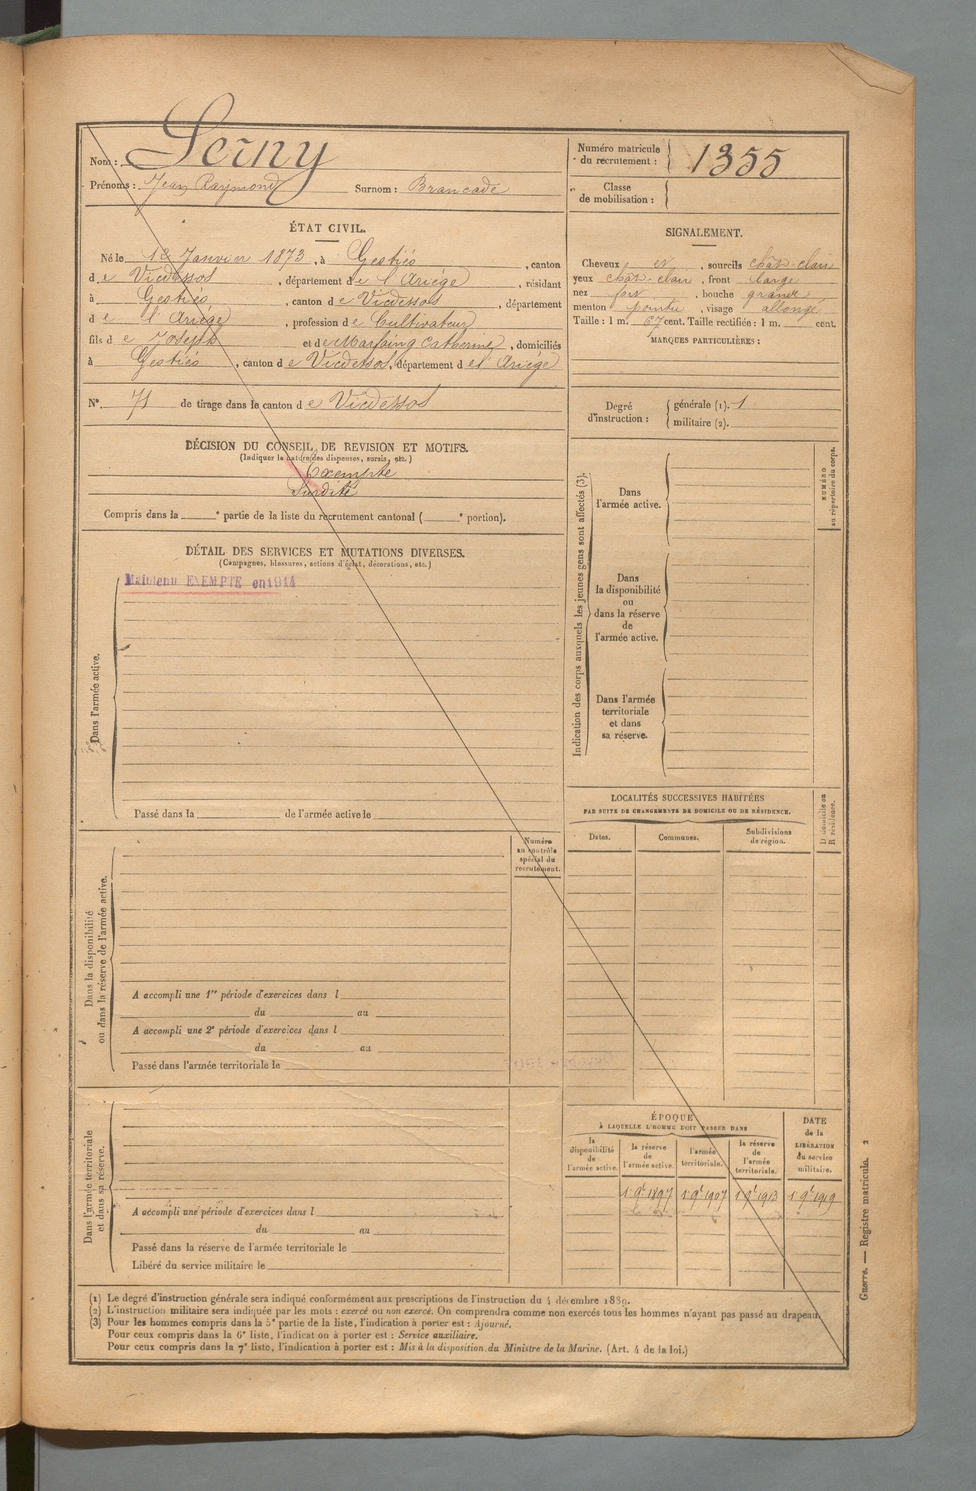 Nom :
Numéro matricule du recrutement : 1355
Prénoms : Jean Raymond Surnom : Brancade
Classe de mobilisation :
ÉTAT CIVIL.
Né le 12 Janvier 1873, à Gestiès, canton
de Vicdessos, département de l'Ariège, résidant
à Gestiès, canton de Vicdessos, département
de l'Ariège, profession de Cultivateur
fils de Joseph et de Marfaing Catherine, domiciliés
à Gestiès, canton de Vicdessos, département de l'Ariège
N° 71 de tirage dans le canton de Vicdessos
SIGNALEMENT.
Cheveux et, sourcils chât-clair
yeux chât-clair, front large
nez fort, bouche grande
menton pointu, visage allongé
Taille : 1 m. 67 cent. Taille rectifiée : 1 m. cent.
MARQUES PARTICULIÈRES :
Degré d'instruction : générale (1). 1
militaire (2).
DÉCISION DU CONSEIL DE REVISION ET MOTIFS.
(Indiquer la nature des dispenses, sursis, etc.)
Exempté
Surdité
Compris dans la e partie de la liste du recrutement cantonal ( e portion).
DÉTAIL DES SERVICES ET MUTATIONS DIVERSES.
(Campagnes, blessures, actions d'éclat, décorations, etc.)
Maintenu EXEMPTE en 1914
Dans l'armée active.
Passé dans la de l'armée active le
Indication des corps auxquels les jeunes gens sont affectés (3).
NUMÉRO au répertoire du corps.
Dans l'armée active.
Dans la disponibilité ou dans la réserve de l'armée active.
Dans l'armée territoriale et dans sa réserve.
LOCALITÉS SUCCESSIVES HABITÉES
PAR SUITE DE CHANGEMENTS DE DOMICILE OU DE RÉSIDENCE.
Dates. Communes. Subdivisions de région.
D domicile ou R résidence.
Numéro au contrôle spécial du recrutement.
Dans la disponibilité ou dans la réserve de l'armée active.
A accompli une 1re période d'exercices dans l
du au
A accompli une 2e période d'exercices dans l
du au
Passé dans l'armée territoriale le
Dans l'armée territoriale et dans sa réserve.
A accompli une période d'exercices dans l
du au
Passé dans la réserve de l'armée territoriale le
Libéré du service militaire le
ÉPOQUE
À LAQUELLE L'HOMME DOIT PASSER DANS
la disponibilité de l'armée active. la réserve de l'armée active. l'armée territoriale. la réserve de l'armée territoriale.
DATE de la LIBÉRATION du service militaire.
1 9bre 1897 1 9bre 1907 1 9bre 1913 1 9bre 1919
(1) Le degré d'instruction générale sera indiqué conformément aux prescriptions de l'instruction du 4 décembre 1889.
(2) L'instruction militaire sera indiquée par les mots : exercé ou non exercé. On comprendra comme non exercés tous les hommes n'ayant pas passé au drapeau.
(3) Pour les hommes compris dans la 5e partie de la liste, l'indication à porter est : Ajourné.
Pour ceux compris dans la 6e liste, l'indication à porter est : Service auxiliaire.
Pour ceux compris dans la 7e liste, l'indication à porter est : Mis à la disposition du Ministre de la Marine. (Art. 4 de la loi.)
Guerre. — Registre matricule. 2